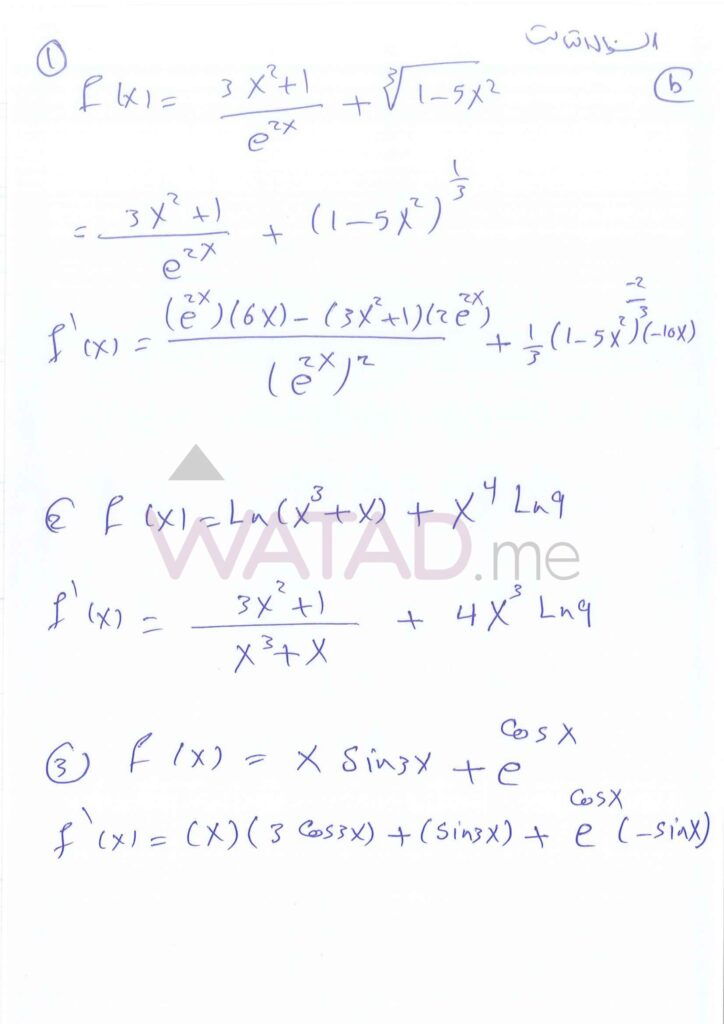 ①
f(x) = (3x²+1)/(e^{2x}) + ∛(1-5x²)
b
= (3x²+1)/(e^{2x}) + (1-5x²)^{1/3}
f'(x) = ((e^{2x})(6x) - (3x²+1)(2e^{2x}))/((e^{2x})²) + 1/3 (1-5x²)^{-2/3} (-10x)
2 f(x) = Ln(x³+x) + x⁴ Ln9
WATAD.me
f'(x) = (3x²+1)/(x³+x) + 4x³ Ln9
③ f(x) = x Sin3x + e^{Cosx}
f'(x) = (x)(3 Cos3x) + (Sin3x) + e^{Cosx} (-Sinx)